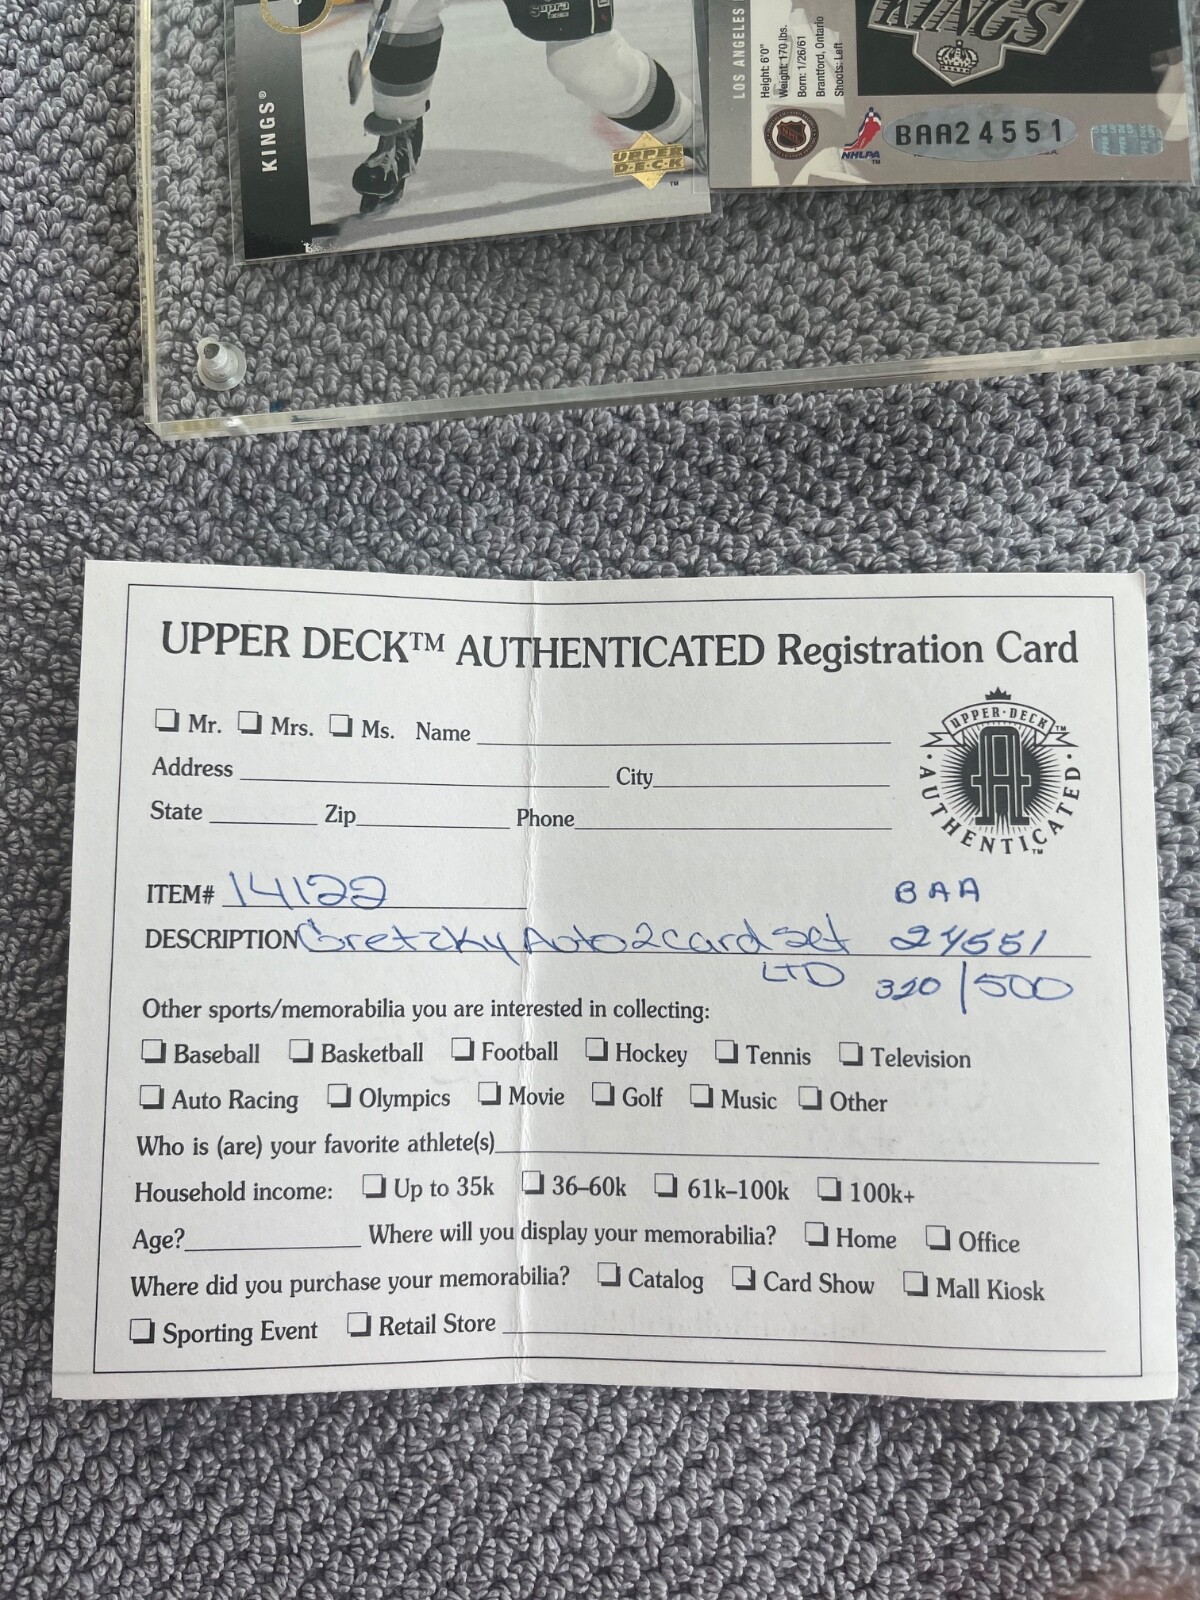 KINGS®
Supra
UPPER
DECK
™
LOS ANGELES
Height: 6'0"
Weight: 170 lbs.
Born: 1/26/61
Brantford, Ontario
Shoots: Left
KINGS
NHL
NHLPA
BAA24551
UPPER DECK™ AUTHENTICATED Registration Card
Mr. Mrs. Ms. Name
Address City
State Zip Phone
UPPER·DECK™
AUTHENTICATED™
ITEM# 14122 BAA
DESCRIPTION Gretzky Auto 2 card set 24551
LTD 320/500
Other sports/memorabilia you are interested in collecting:
Baseball Basketball Football Hockey Tennis Television
Auto Racing Olympics Movie Golf Music Other
Who is (are) your favorite athlete(s)
Household income: Up to 35k 36–60k 61k–100k 100k+
Age? Where will you display your memorabilia? Home Office
Where did you purchase your memorabilia? Catalog Card Show Mall Kiosk
Sporting Event Retail Store